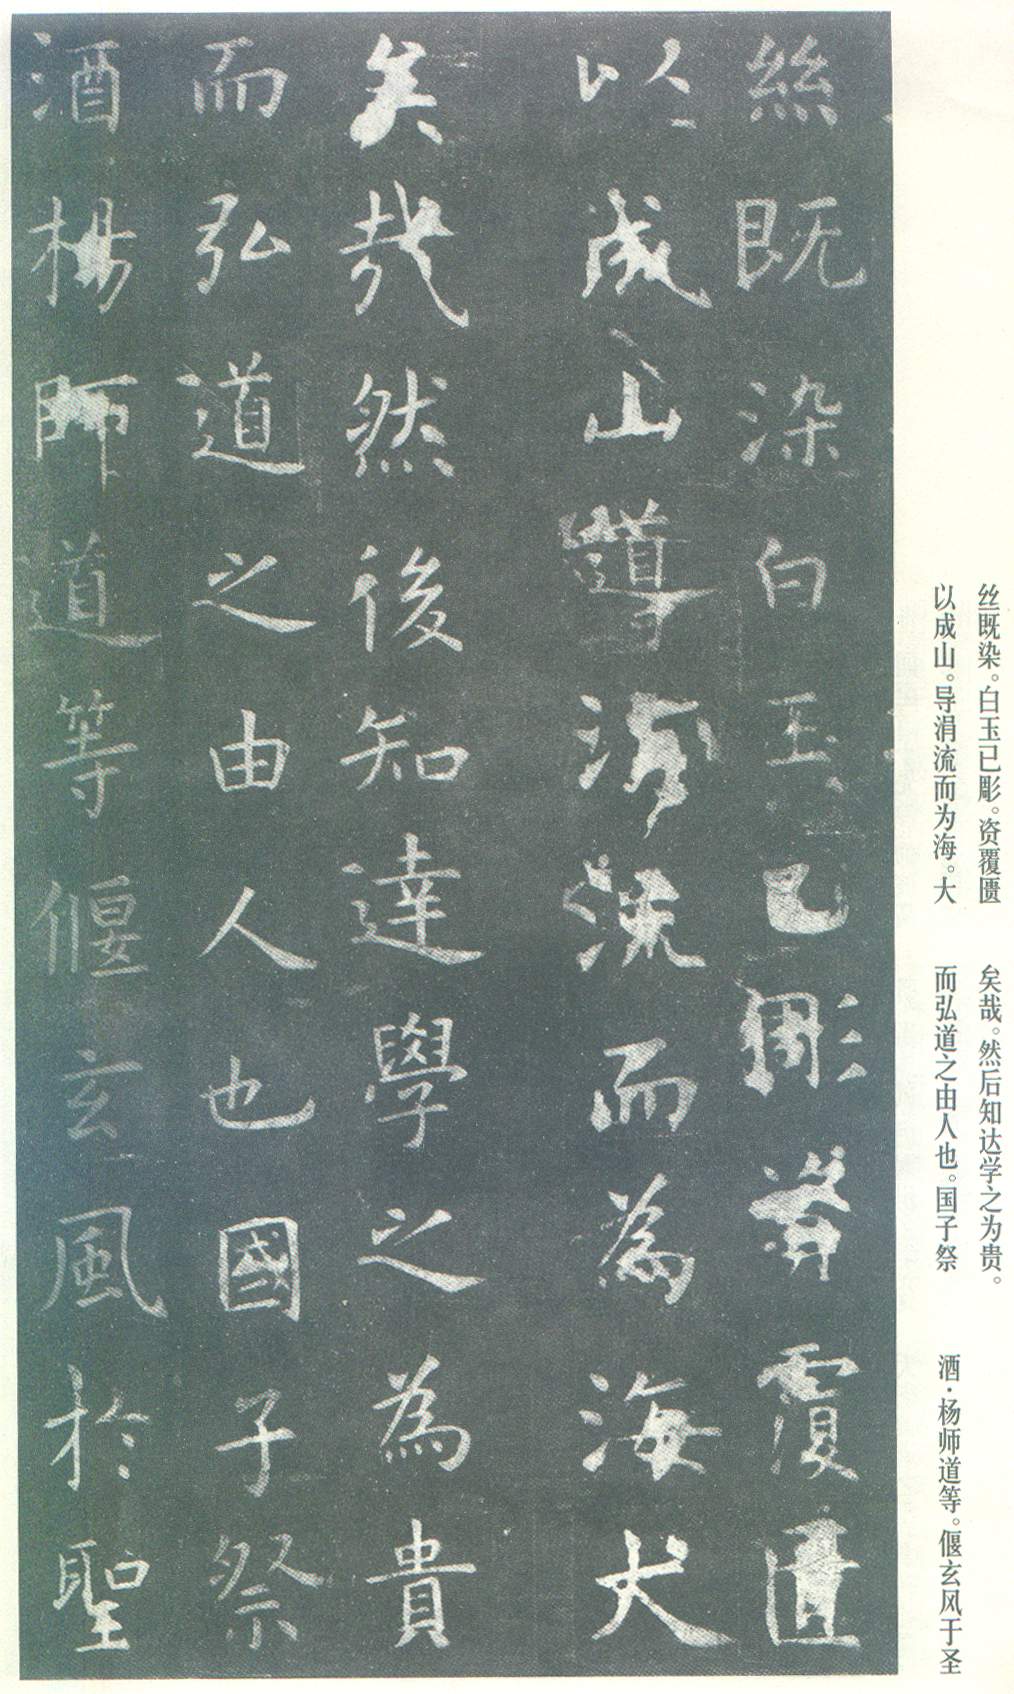 絲既染白玉已彫資覆匱
以成山導涓流而為海大
矣哉然後知達學之為貴
而弘道之由人也國子祭
酒楊師道等偃玄風於聖
丝既染。白玉已彫。资覆匮
以成山。导涓流而为海。大
矣哉。然后知达学之为贵。
而弘道之由人也。国子祭
酒·杨师道等。偃玄风于圣